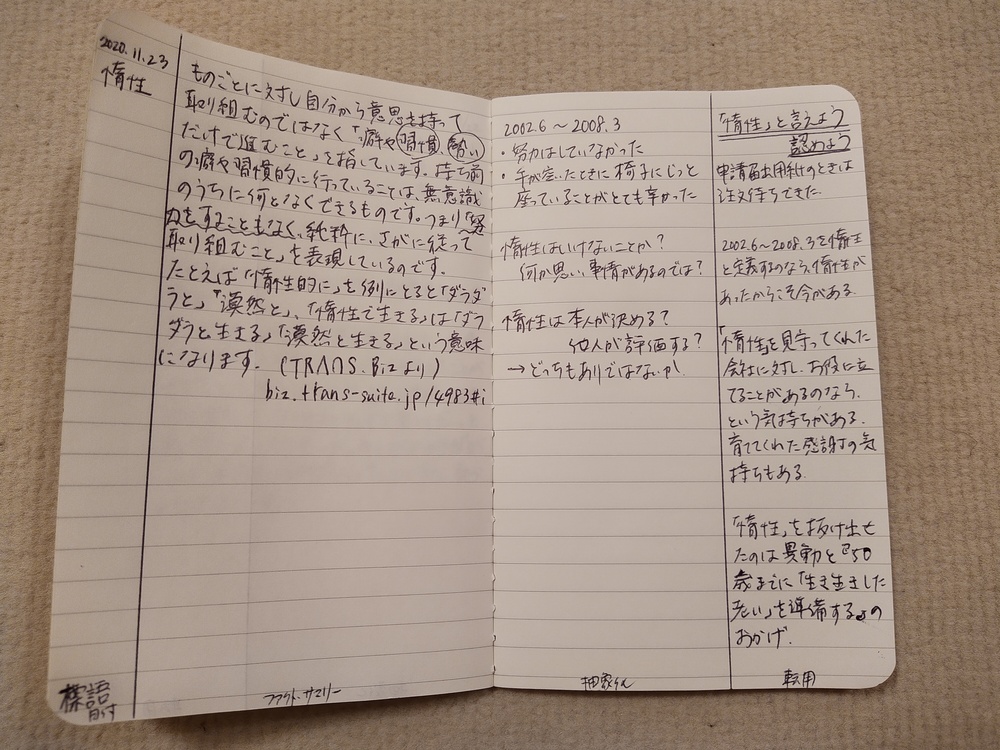 2020.11.23
惰性
ものごとに対し自分から意思を持って
取り組むのではなく「癖や習慣、勢い
だけで進むこと」を指しています。持ち前
の癖や習慣的に行っていることは、無意識
のうちに何となくできるものです。つまり「努
力をすることもなく、純粋に、さがに従って
取り組むこと」を表現しているのです。
たとえば「惰性的に」を例にとると「ダラダ
ラと」「漠然と」、「惰性で生きる」は「ダラ
ダラと生きる」「漠然と生きる」という意味
になります。(TRANS.Bizより)
biz.trans-suite.jp/4983#i
標語
日付
ファクト・サマリー
2002.6〜2008.3
・努力はしていなかった
・手が空いたときに椅子にじっと
座っていることがとても辛かった
惰性はいけないことか?
何か思い、事情があるのでは?
惰性は本人が決める?
他人が評価する?
→どっちもありではないか
抽象化
「惰性」と言えよう
認めよう
申請届出用紙のときは
注文待ちできた
2002.6〜2008.3を惰性
と定義するのなら、惰性が
あったからこそ今がある
「惰性」を見守ってくれた
会社に対し、お役に立
てることがあるのなら、
という気持ちがある。
育ててくれた感謝の気
持ちもある
「惰性」を抜け出せ
たのは異動と『50
歳までに「生き生きした
老い」を準備する』の
おかげ.
転用